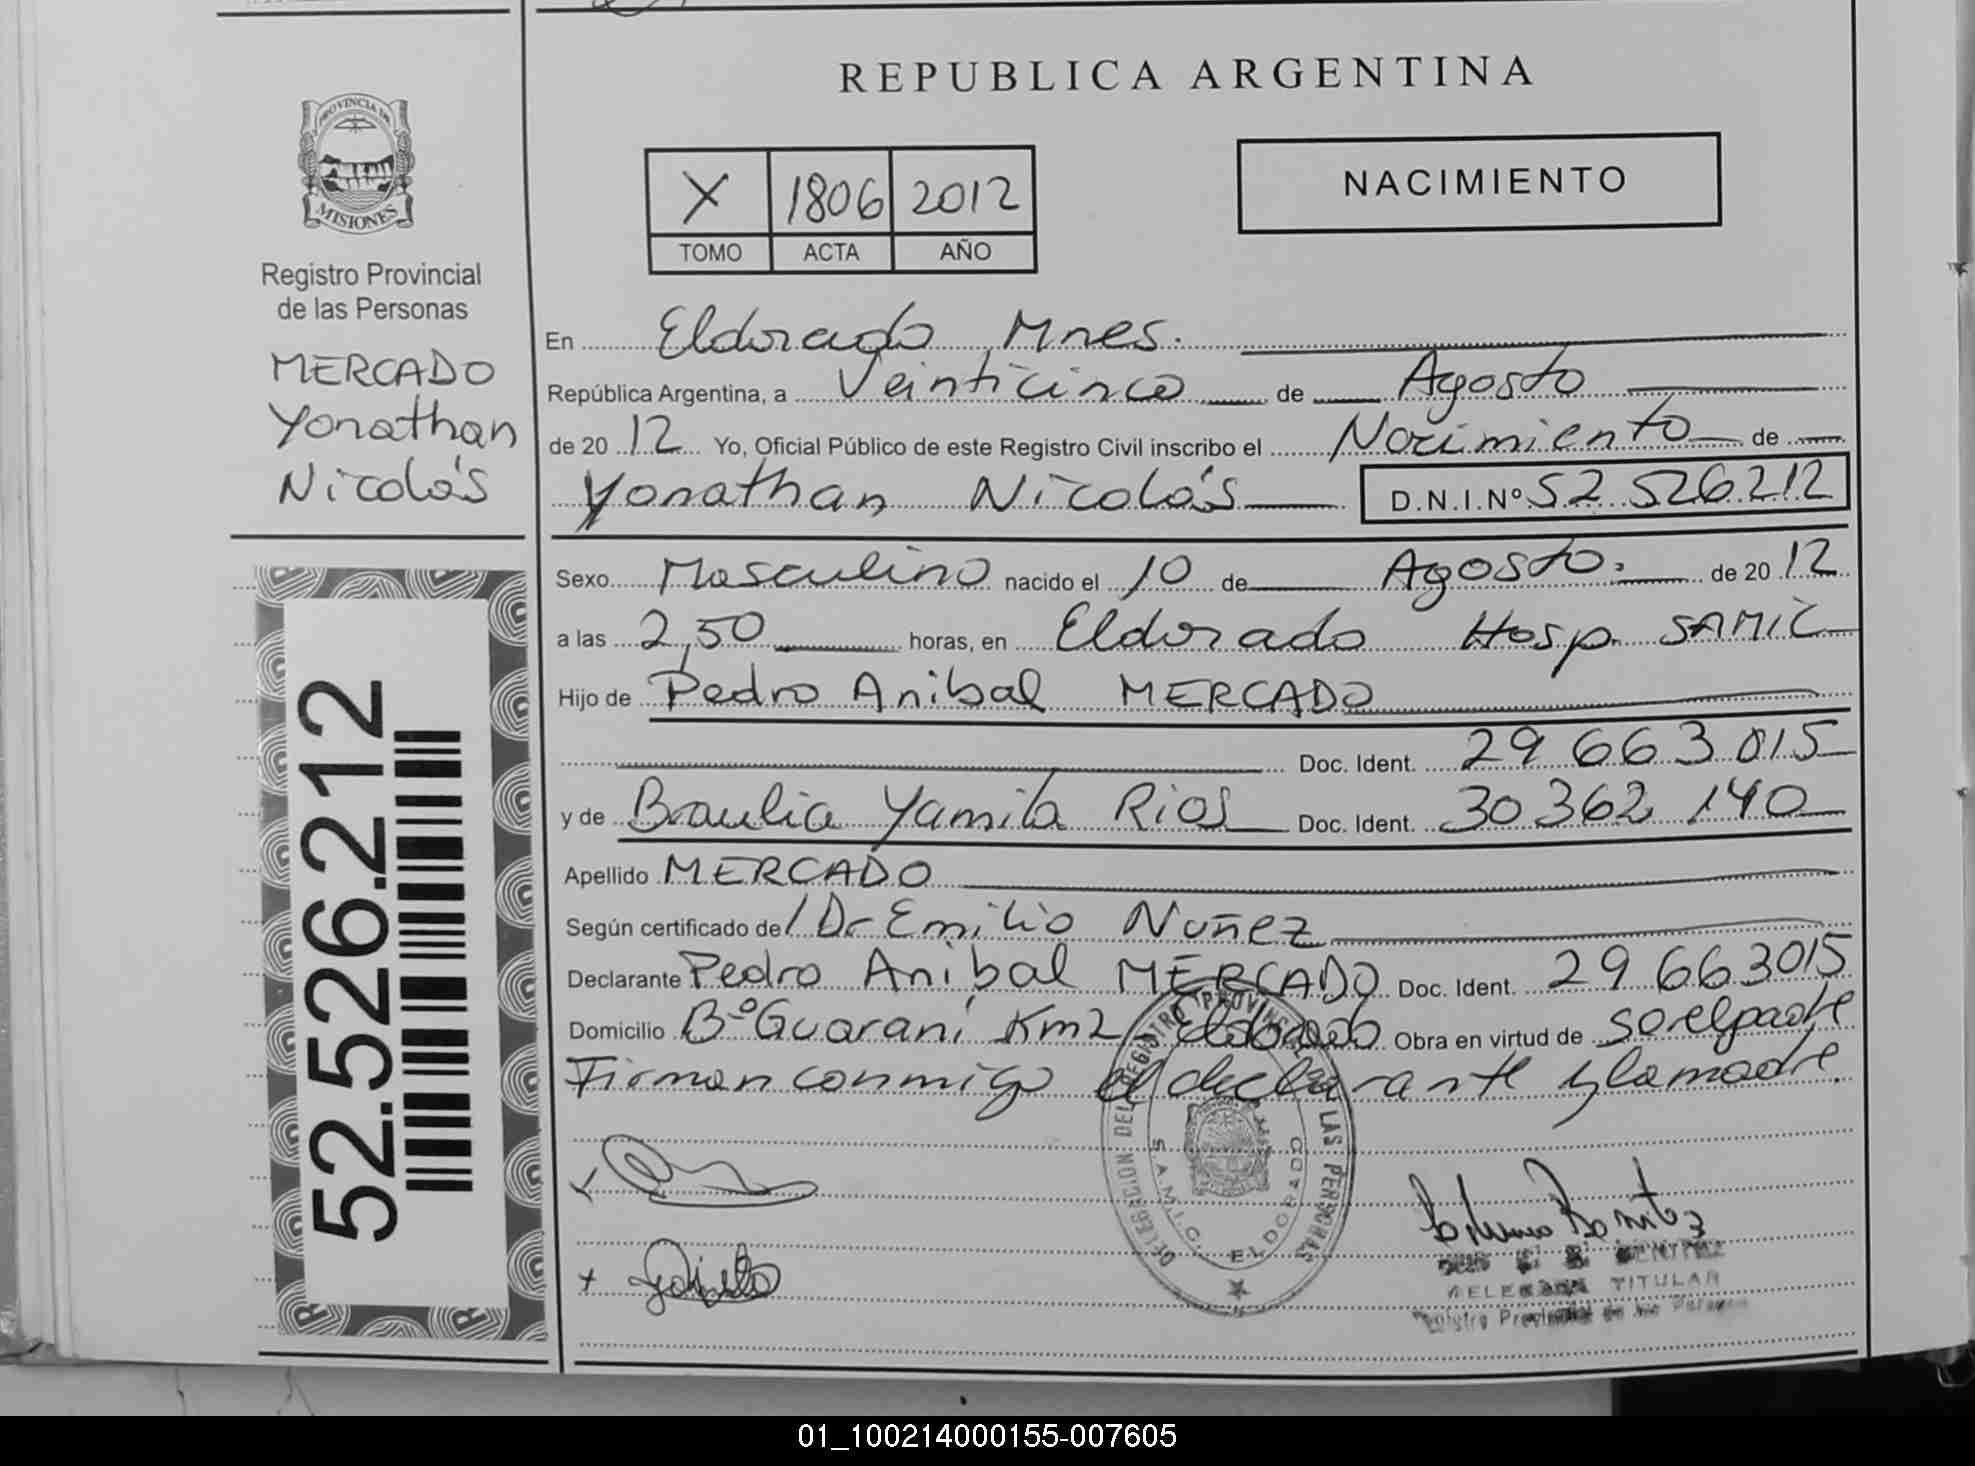 PROVINCIA DE
MISIONES
Registro Provincial
de las Personas
MERCADO
Yonathan
Nicolás
52.526.212
REPUBLICA ARGENTINA
X 1806 2012
TOMO ACTA AÑO
NACIMIENTO
En Eldorado, Mnes.
República Argentina, a Veinticinco de Agosto
de 2012 Yo, Oficial Público de este Registro Civil inscribo el Nacimiento de
Yonathan Nicolás D.N.I.Nº 52 526.212
Sexo Masculino nacido el 10 de Agosto. de 2012
a las 2,50 horas, en Eldorado Hosp. SAMIC
Hijo de Pedro Anibal MERCADO
Doc. Ident. 29 663 015
y de Braulia Yamila Rios Doc. Ident. 30 362 140
Apellido MERCADO
Según certificado de Dr Emilio Nuñez
Declarante Pedro Anibal MERCADO Doc. Ident. 29 663015
Domicilio Bº Guarani Km2 Eldorado Obra en virtud de ser el padre
Firman conmigo el declarante y la madre.
DELEGACION DEL REGISTRO PROVINCIAL DE LAS PERSONAS
S.A.M.I.C. ELDORADO
TITULAR
Registro Provincial de las Personas
01_100214000155-007605